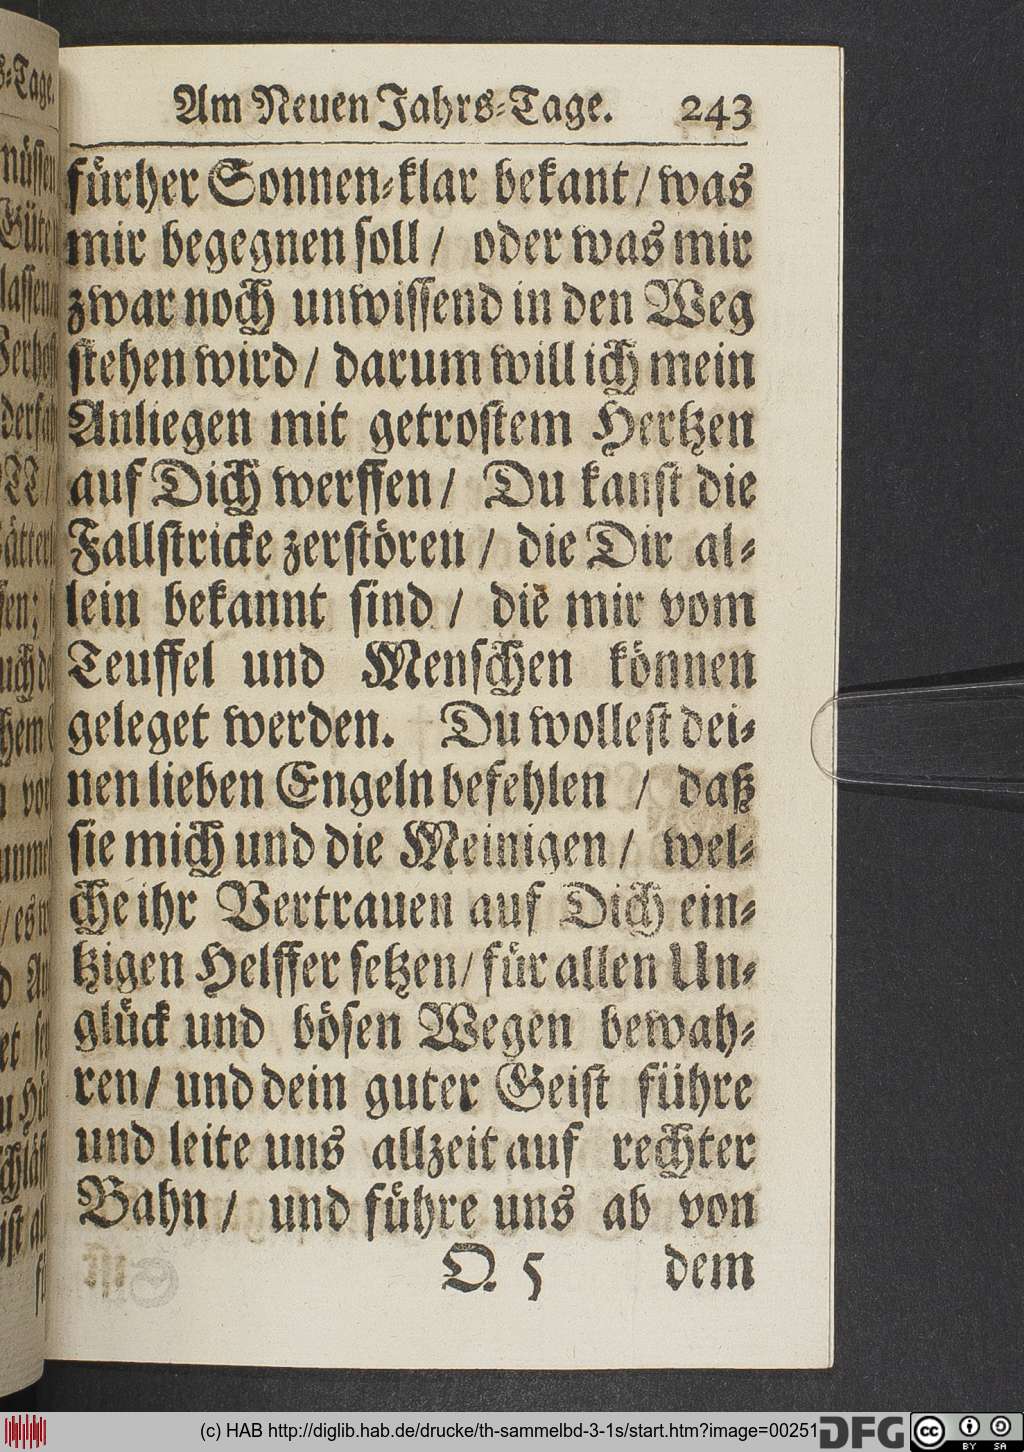 Am Neuen Jahrs-Tage. 243
fürher Sonnen-klar bekant / was
mir begegnen soll / oder was mir
zwar noch unwissend in den Weg
stehen wird / darum will ich mein
Anliegen mit getrostem Hertzen
auf Dich werffen / Du kanst die
Fallstricke zerstören / die Dir al-
lein bekannt sind / die mir vom
Teuffel und Menschen können
geleget werden. Du wollest dei-
nen lieben Engeln befehlen / daß
sie mich und die Meinigen / wel-
che ihr Vertrauen auf Dich ein-
tzigen Helffer setzen / für allen Un-
glück und bösen Wegen bewah-
ren / und dein guter Geist führe
und leite uns allzeit auf rechter
Bahn / und führe uns ab von
O. 5 dem
(c) HAB http://diglib.hab.de/drucke/th-sammelbd-3-1s/start.htm?image=00251
DFG cc BY SA